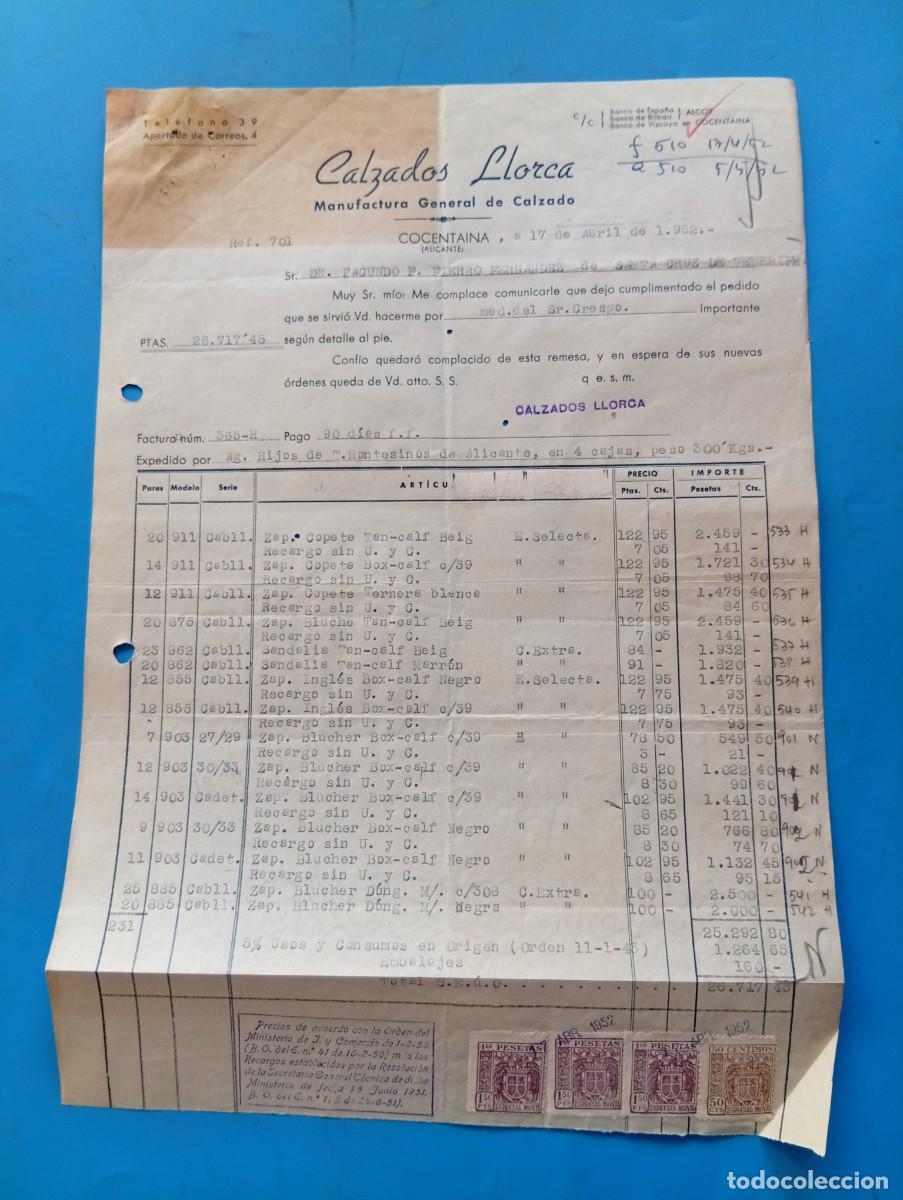 Teléfono 39
Apartado de Correos, 4
c/c
Banco de España
Banco de Bilbao
ALCOY
Banco de Vizcaya en COCENTAINA
f 510 17/4/52
a 510 5/5/52
Calzados Llorca
Manufactura General de Calzado
Ref. 701
COCENTAINA, a 17 de Abril de 1.952.-
(ALICANTE)
Sr. DN. FACUNDO F. FIERRO FERNANDEZ de SANTA CRUZ DE TENERIFE
Muy Sr. mío: Me complace comunicarle que dejo cumplimentado el pedido
que se sirvió Vd. hacerme por med.del Sr.Crespo. importante
PTAS. 26.717'45 según detalle al pie.
Confío quedará complacido de esta remesa, y en espera de sus nuevas
órdenes queda de Vd. atto. S. S. q e. s. m.
CALZADOS LLORCA
Factura núm. 365-H Pago 90 días f.f.
Expedido por Ag. Hijos de T.Montesinos de Alicante, en 4 cajas, peso 300'Kgs.-
Pares Modelo Serie ARTÍCU PRECIO IMPORTE
Ptas. Cts. Pesetas Cts.
20 911 Cabll. Zap. Copete Tan-calf Beig E.Selecta. 122 95 2.459 - 533 H
Recargo sin U. y C. 7 05 141 -
14 911 Cabll. Zap. Copete Box-calf c/39 " " 122 95 1.721 30 534 H
Recargo sin U. y C. 7 05 98 70
12 911 Cabll. Zap. Copete Ternera blanca " " 122 95 1.475 40 535 H
Recargo sin U. y C. 7 05 84 60
20 875 Cabll. Zap. Bluche Tan-calf Beig " " 122 95 2.459 - 536 H
Recargo sin U. y C. 7 05 141 -
23 862 Cabll. Sandalia Tan-calf Beig C.Extra. 84 - 1.932 - 537 H
20 862 Cabll. Sandalia Tan-calf Marrón " " 91 - 1.820 - 538 H
12 855 Cabll. Zap. Inglés Box-calf Negro E.Selecta. 122 95 1.475 40 539 H
Recargo sin U. y C. 7 75 93 -
12 855 Cabll. Zap. Inglés Box-calf c/39 " " 122 95 1.475 40 540 H
Recargo sin U. y C. 7 75 93 -
7 903 27/29 Zap. Blucher Box-calf c/39 E " 78 50 549 50 901 N
Recargo sin U. y C. 3 - 21 -
12 903 30/33 Zap. Blucher Box-calf c/39 " " 85 20 1.022 40 N
Recargo sin U. y C. 8 30 99 60
14 903 Cadet. Zap. Blucher Box-calf c/39 " " 102 95 1.441 30 N
Recargo sin U. y C. 8 65 121 10
9 903 30/33 Zap. Blucher Box-calf Negro " " 85 20 766 80 902 N
Recargo sin U. y C. 8 30 74 70
11 903 Cadet. Zap. Blucher Box-calf Negro " " 102 95 1.132 45 N
Recargo sin U. y C. 8 65 95 15
25 885 Cabll. Zap. Blucher Dóng. M/. c/308 C.Extra. 100 - 2.500 - 541 H
20 885 Cabll. Zap. Blucher Dóng. M/. Negra " " 100 - 2.000 - 542 H
231 25.292 80
5% Usos y Consumos en Origen (Orden 11-1-43) 1.264 65
Embalajes 160 -
Total S.E.ú.O. 26.717 45
N
Precios de acuerdo con la Orden del
Ministerio de I. y Comercio de 1-2-50
(B. O. del E. n.º 41 de 10-2-50) más los
Recargos establecidos por la Resolución
de la Secretaría General Técnica de dicho
Ministerio de fecha 15 Junio 1951.
ABR. 1952
ABR. 1952
1'50 PESETAS
1'50 PTS
ESPECIAL MOVIL
1'50 PESETAS
1'50 PTS
ESPECIAL MOVIL
1'50 PESETAS
1'50 PTS
ESPECIAL MOVIL
50 CENTIMOS
50 CTS
ESPECIAL MOVIL
todocoleccion